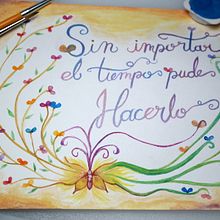 Sin importar
el tiempo pude
Hacerlo